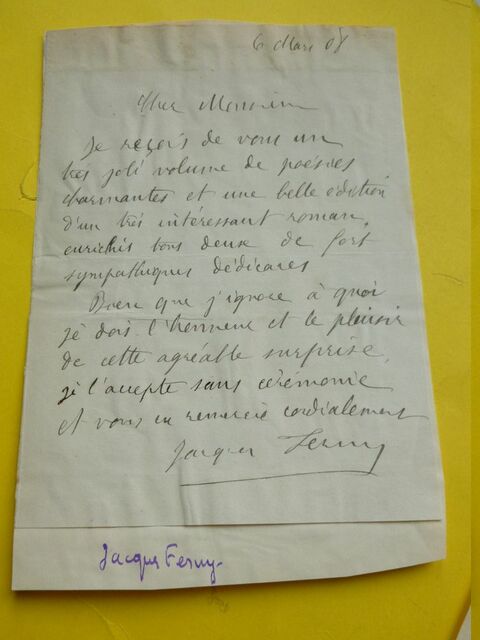 6 Mars 08
Cher Monsieur
Je reçois de vous un
très joli volume de poésies
charmantes et une belle édition
d'un très intéressant roman,
enrichis tous deux de fort
sympathiques dédicaces
Bien que j'ignore à quoi
je dois l'honneur et le plaisir
de cette agréable surprise,
je l'accepte sans cérémonie
et vous en remercie cordialement
Jacques Ferny
Jacques Ferny.